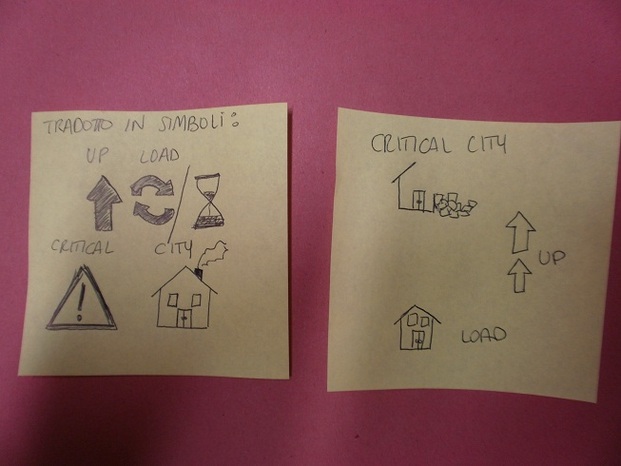 TRADOTTO IN SIMBOLI:
UP LOAD
CRITICAL CITY
CRITICAL CITY
UP
LOAD